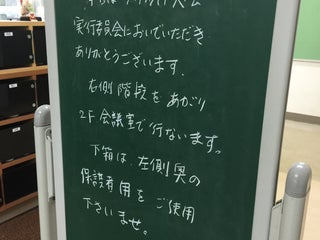 実行委員会においでいただき
ありがとうございます.
右側階段をあがり
2F会議室で行ないます。
下箱は、左側奥の
保護者用をご使用
下さいませ。